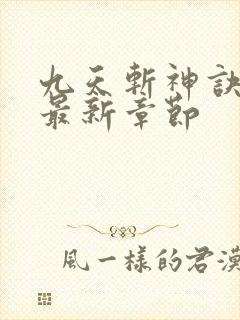 九天斬神訣
最新章節
風一樣的君漠